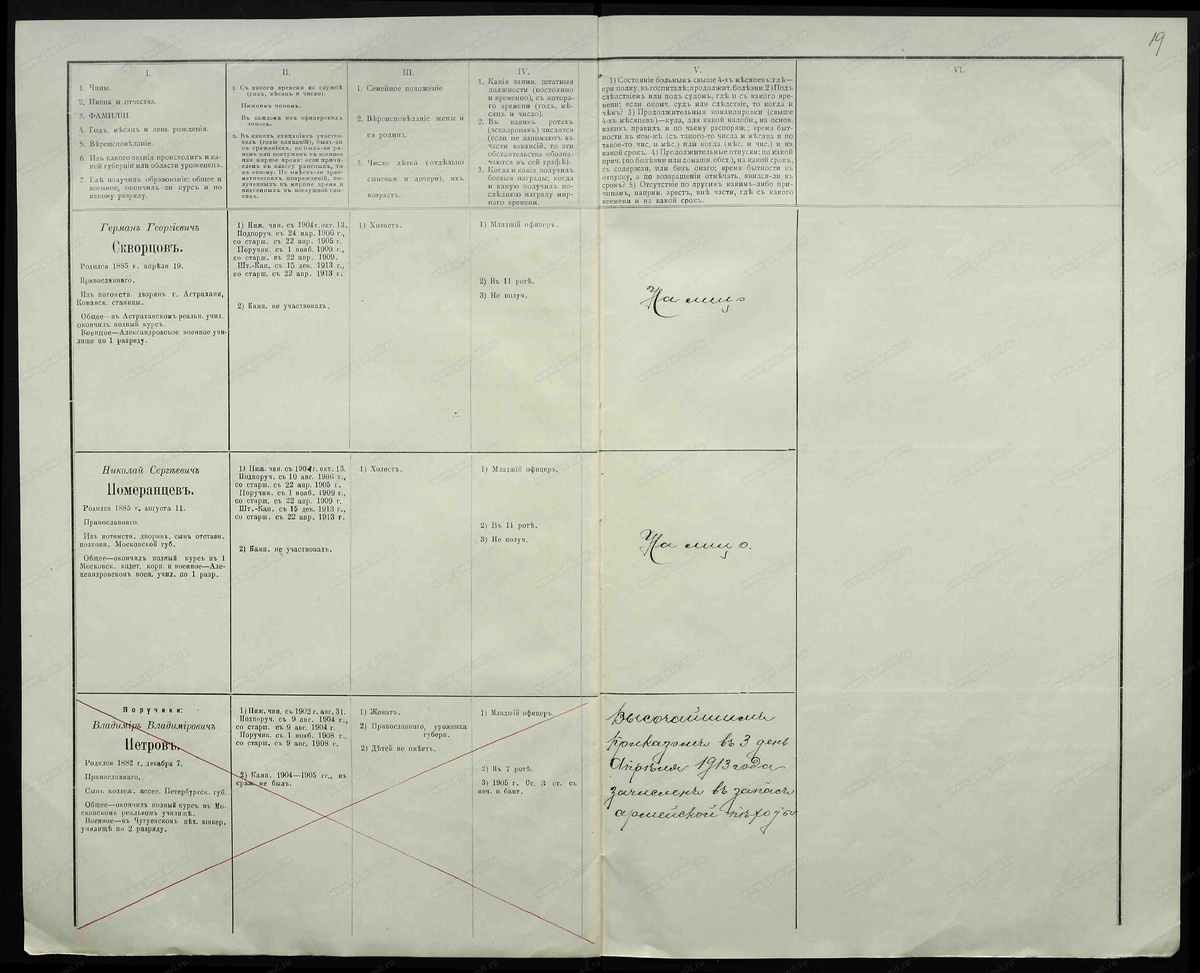 19
I.
1. Чины.
2. Имена и отчества.
3. ФАМИЛІИ.
4. Годъ, мѣсяцъ и день рожденія.
5. Вѣроисповѣданіе.
6. Изъ какого званія происходитъ и ка-
кой губерніи или области уроженецъ.
7. Гдѣ получилъ образованіе: общее и
военное, окончилъ-ли курсъ и по
какому разряду.
II.
1. Съ какого времени на службѣ
(годъ, мѣсяцъ и число).
Нижнимъ чиномъ.
Въ каждомъ изъ офицерскихъ
чиновъ.
2. Въ какихъ кампаніяхъ участво-
валъ (годы кампаній), былъ-ли
въ сраженіяхъ, не былъ-ли ра-
ненъ или контуженъ въ военное
или мирное время; если причи-
сленъ къ классу раненыхъ, то
къ какому. Не имѣетъ-ли трав-
матическихъ поврежденій, по-
лученныхъ въ мирное время и
внесенныхъ въ послужной спи-
сокъ.
III.
1. Семейное положеніе
2. Вѣроисповѣданіе жены и
ея родина.
3. Число дѣтей (отдѣльно
сыновья и дочери), ихъ
возрастъ.
IV.
1. Какія заним. штатныя
должности (постоянно
и временно), съ котора-
го времени (годъ, мѣ-
сяцъ и число).
2. Въ какихъ ротахъ
(эскадронахъ) числятся
(если не занимаютъ въ
части вакансій, то эти
обстоятельства обозна-
чаются въ сей графѣ).
3. Когда и какія получилъ
боевыя награды; когда
и какую получилъ по-
слѣднюю награду мир-
наго времени.
V.
1) Состояніе больнымъ свыше 4-хъ мѣсяцевъ: гдѣ—
при полку, въ госпиталѣ; продолжит. болѣзни. 2) Подъ
слѣдствіемъ или подъ судомъ, гдѣ и съ какого вре-
мени; если оконч. судъ или слѣдствіе, то когда и
чѣмъ? 3) Продолжительныя командировки (свыше
4-хъ мѣсяцевъ)—куда, для какой надобн., на основ.
какихъ правилъ и по чьему распоряж.; время быт-
ности въ ком-кѣ (съ такого-то числа и мѣсяца и по
такое-то чис. и мѣс.) или когда (мѣс. и чис.) и на
какой срокъ. 4) Продолжительные отпуски: по какой
прич. (по болѣзни или домашн. обст.), на какой срокъ,
съ содержан. или безъ онаго; время бытности въ
отпуску, а по возвращеніи отмѣчать, явился-ли въ
срокъ? 5) Отсутствіе по другимъ какимъ-либо при-
чинамъ, наприм. арестъ, внѣ части, гдѣ съ какого
времени и на какой срокъ.
VI.
Германъ Георгіевичъ
Скворцовъ.
Родился 1885 г. апрѣля 19.
Православнаго.
Изъ потомств. дворянъ г. Астрахани,
станицы.
Общее—въ Астраханскомъ реальн. учил.
окончилъ полный курсъ.
Военное—Александровское военное учи-
лище по 1 разряду.
1) Ниж. чин. съ 1904 г. окт. 13.
Подпоруч. съ 24 мар. 1906 г.,
со старш. съ 22 апр. 1905 г.
Поручик. съ 1 нояб. 1909 г.,
со старш. съ 22 апр. 1909.
Шт.-Кап. съ 15 дек. 1913 г.,
со старш. съ 22 апр. 1913 г.
2) Камп. не участвовалъ.
1) Холостъ.
1) Младшій офицеръ.
2) Въ 11 ротѣ.
3) Не получ.
На лицо
Николай Сергѣевичъ
Померанцевъ.
Родился 1885 г. августа 11.
Православнаго.
Изъ потомств. дворянъ, сынъ отставн.
полковн. Московской губ.
Общее—окончилъ полный курсъ въ 1
Московск. кадет. корп. и военное—Але-
ксандровскомъ воен. учил. по 1 разр.
1) Ниж. чин. съ 1904 г. окт. 13.
Подпоруч. съ 10 авг. 1906 г.,
со старш. съ 22 апр. 1905 г.
Поручик. съ 1 нояб. 1909 г.,
со старш. съ 22 апр. 1909 г.
Шт.-Кап. съ 15 дек. 1913 г.,
со старш. съ 22 апр. 1913 г.
2) Камп. не участвовалъ.
1) Холостъ.
1) Младшій офицеръ.
2) Въ 11 ротѣ.
3) Не получ.
На лицо.
Поручики:
Владиміръ Владиміровичъ
Петровъ.
Родился 1882 г. декабря 7.
Православнаго.
Сынъ коллеж. ассес. Петербургск. губ.
Общее—окончилъ полный курсъ въ Мо-
сковскомъ реальномъ училищѣ.
Военное—въ Чугуевскомъ пѣх. юнкер.
училищѣ по 2 разряду.
1) Ниж. чин. съ 1902 г. авг. 31.
Подпоруч. съ 9 авг. 1904 г.,
со старш. съ 9 авг. 1904 г.
Поручик. съ 1 нояб. 1908 г.,
со старш. съ 9 авг. 1908 г.
2) Камп. 1904—1905 гг., въ
сраж. не былъ.
1) Женатъ.
2) Православнаго, уроженка
губерн.
2) Дѣтей не имѣетъ.
1) Младшій офицеръ.
2) Въ 7 ротѣ.
3) 1905 г. Ст. 3 ст. съ
меч. и бант.
Высочайшимъ
приказомъ въ 3 день
Апрѣля 1913 года
зачисленъ въ запасъ
армейской пѣхоты